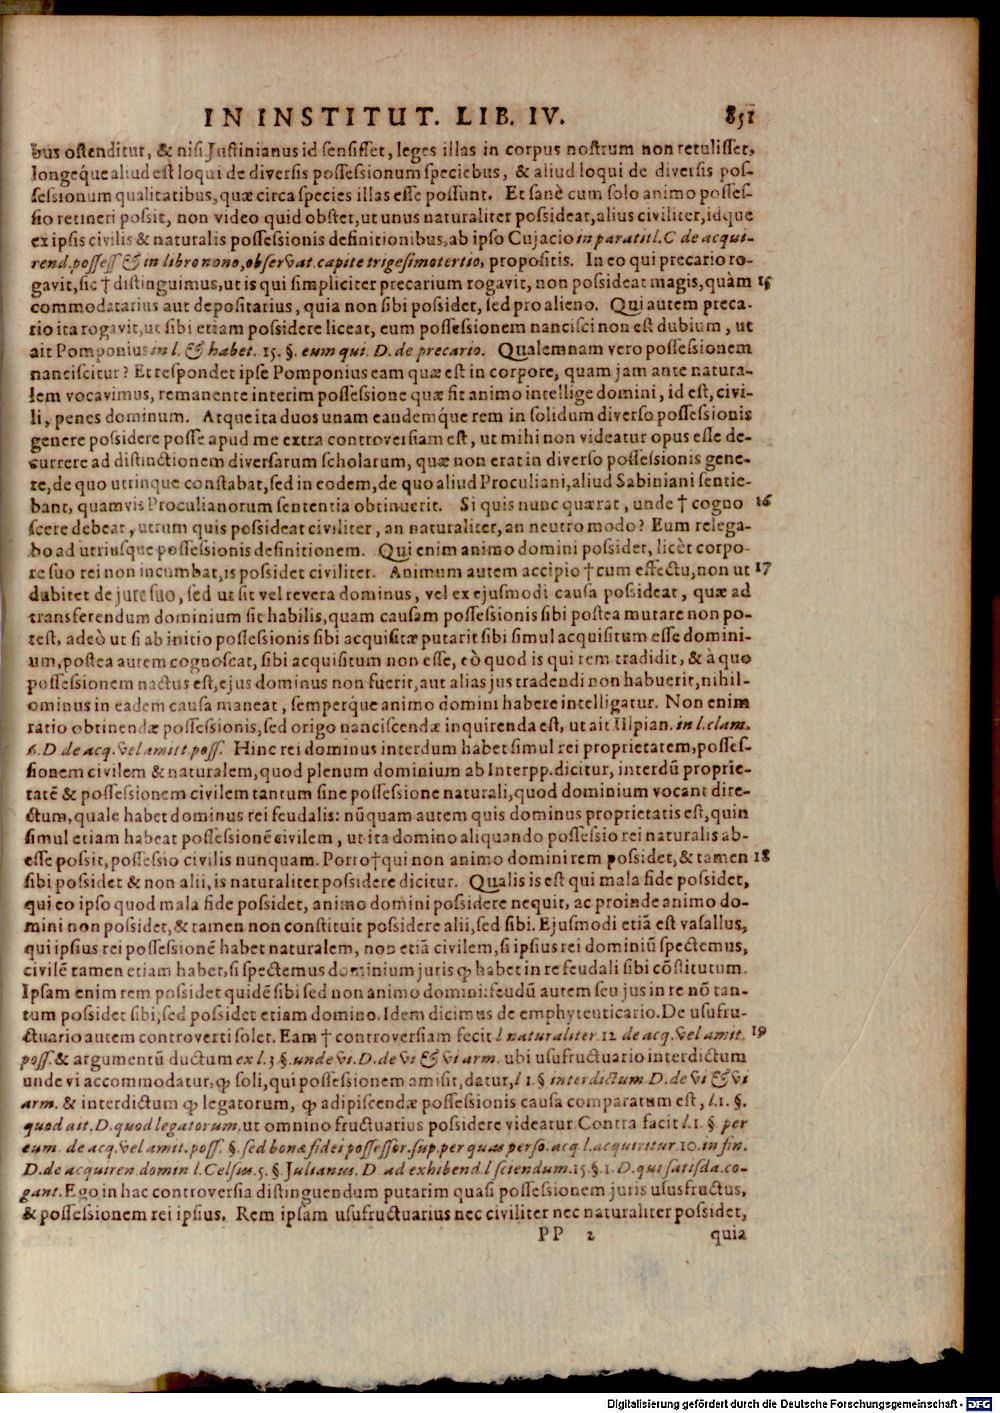 IN INSTITUT. LIB. IV. 851
bus ostenditur, & nisi Justinianus id sensisset, leges illas in corpus nostrum non retulisset,
longeque aliud est loqui de diversis possessionum speciebus, & aliud loqui de diversis pos-
sessionum qualitatibus, quæ circa species illas esse possunt. Et sanè cum solo animo posses-
sio retineri possit, non video quid obstet, ut unus naturaliter possideat, alius civiliter, idque
ex ipsis civilis & naturalis possessionis definitionibus, ab ipso Cujacio in paratitl. C de acqui-
rend. possess & in libro nono, observat. capite trigesimotertio, propositis. In eo qui precario ro-
gavit, sic † distinguimus, ut is qui simpliciter precarium rogavit, non possideat magis, quàm 15
commodatarius aut depositarius, quia non sibi possidet, sed pro alieno. Qui autem preca-
rio ita rogavit, ut sibi etiam possidere liceat, eum possessionem nancisci non est dubium, ut
ait Pomponius in l. & habet. 15. §. eum qui. D. de precario. Qualemnam vero possessionem
nanciscitur? Et respondet ipse Pomponius eam quæ est in corpore, quam jam ante natura-
lem vocavimus, remanente interim possessione quæ fit animo intellige domini, id est, civi-
li, penes dominum. Atque ita duos unam eandemq́ue rem in solidum diverso possessionis
genere possidere posse apud me extra controversiam est, ut mihi non videatur opus esse de-
currere ad distinctionem diversarum scholarum, quæ non erat in diverso possessionis gene-
re, de quo utrinque constabat, sed in eodem, de quo aliud Proculiani, aliud Sabiniani sentie-
bant, quamvis Proculianorum sententia obtinuerit. Si quis nunc quærat, unde † cogno 16
scere debeat, utrum quis possideat civiliter, an naturaliter, an neutro modo? Eum relega-
bo ad utriusque possessionis definitionem. Qui enim animo domini possidet, licèt corpo-
re suo rei non incumbat, is possidet civiliter. Animum autem accipio † cum effectu, non ut 17
dubitet de jure suo, sed ut sit vel revera dominus, vel ex ejusmodi causa possideat, quæ ad
transferendum dominium sit habilis, quam causam possessionis sibi postea mutare non po-
test, adeò ut si ab initio possessionis sibi acquisitæ putarit sibi simul acquisitum esse domini-
um, postea autem cognoscat, sibi acquisitum non esse, eò quod is qui rem tradidit, & à quo
possessionem nactus est, ejus dominus non fuerit, aut alias jus tradendi non habuerit, nihil-
ominus in eadem causa maneat, semperq́ue animo domini habere intelligatur. Non enim
ratio obtinendæ possessionis, sed origo nanciscendæ inquirenda est, ut ait Ulpian. in l. clam.
6. D de acq. vel amitt poss. Hinc rei dominus interdum habet simul rei proprietatem, posses-
sionem civilem & naturalem, quod plenum dominium ab Interpp. dicitur, interdū proprie-
tatē & possessionem civilem tantum sine possessione naturali, quod dominium vocant dire-
ctum, quale habet dominus rei feudalis: nūquam autem quis dominus proprietatis est, quin
simul etiam habeat possessionē civilem, ut ita domino aliquando possessio rei naturalis ab-
esse possit, possessio civilis nunquam. Porro † qui non animo domini rem possidet, & tamen 18
sibi possidet & non alii, is naturaliter possidere dicitur. Qualis is est qui mala fide possidet,
qui eo ipso quod mala fide possidet, animo domini possidere nequit, ac proinde animo do-
mini non possidet, & tamen non constituit possidere alii, sed sibi. Ejusmodi etiā est vasallus,
qui ipsius rei possessionē habet naturalem, non etiā civilem, si ipsius rei dominiū spectemus,
civilē tamen etiam habet, si spectemus dominium juris ꝙ habet in re feudali sibi cōstitutum.
Ipsam enim rem possidet quidē sibi sed non animo domini: feudū autem seu jus in re nō tan-
tum possidet sibi, sed possidet etiam domino. Idem dicimus de emphyteuticario. De usufru-
ctuario autem controverti solet. Eam † controversiam fecit l naturaliter. 12 de acq. vel amit. 19
poss. & argumentū ductum ex l. 3 §. unde vi. D. de vi & vi arm. ubi usufructuario interdictum
unde vi accommodatur, ꝙ soli, qui possessionem amisit, datur, l 1. § interdictum D. de vi & vi
arm. & interdictum ꝙ legatorum, ꝙ adipiscendæ possessionis causa comparatum est, l. 1. §.
quod ait. D. quod legatorum, ut omnino fructuarius possidere videatur Contra facit l. 1. § per
eum. de acq. vel amit. poss. §. sed bonæ fidei possessor. sup. per quas perso. acq. l. acquiritur. 10. in fin.
D. de acquiren. domin l. Celsus. 5. §. Julianus. D ad exhibend. l sciendum. 15. §. 1. D. qui satisda. co-
gant. Ego in hac controversia distinguendum putarim quasi possessionem juris ususfructus,
& possessionem rei ipsius. Rem ipsam usufructuarius nec civiliter nec naturaliter possidet,
PP 2 quia
Digitalisierung gefördert durch die Deutsche Forschungsgemeinschaft - DFG